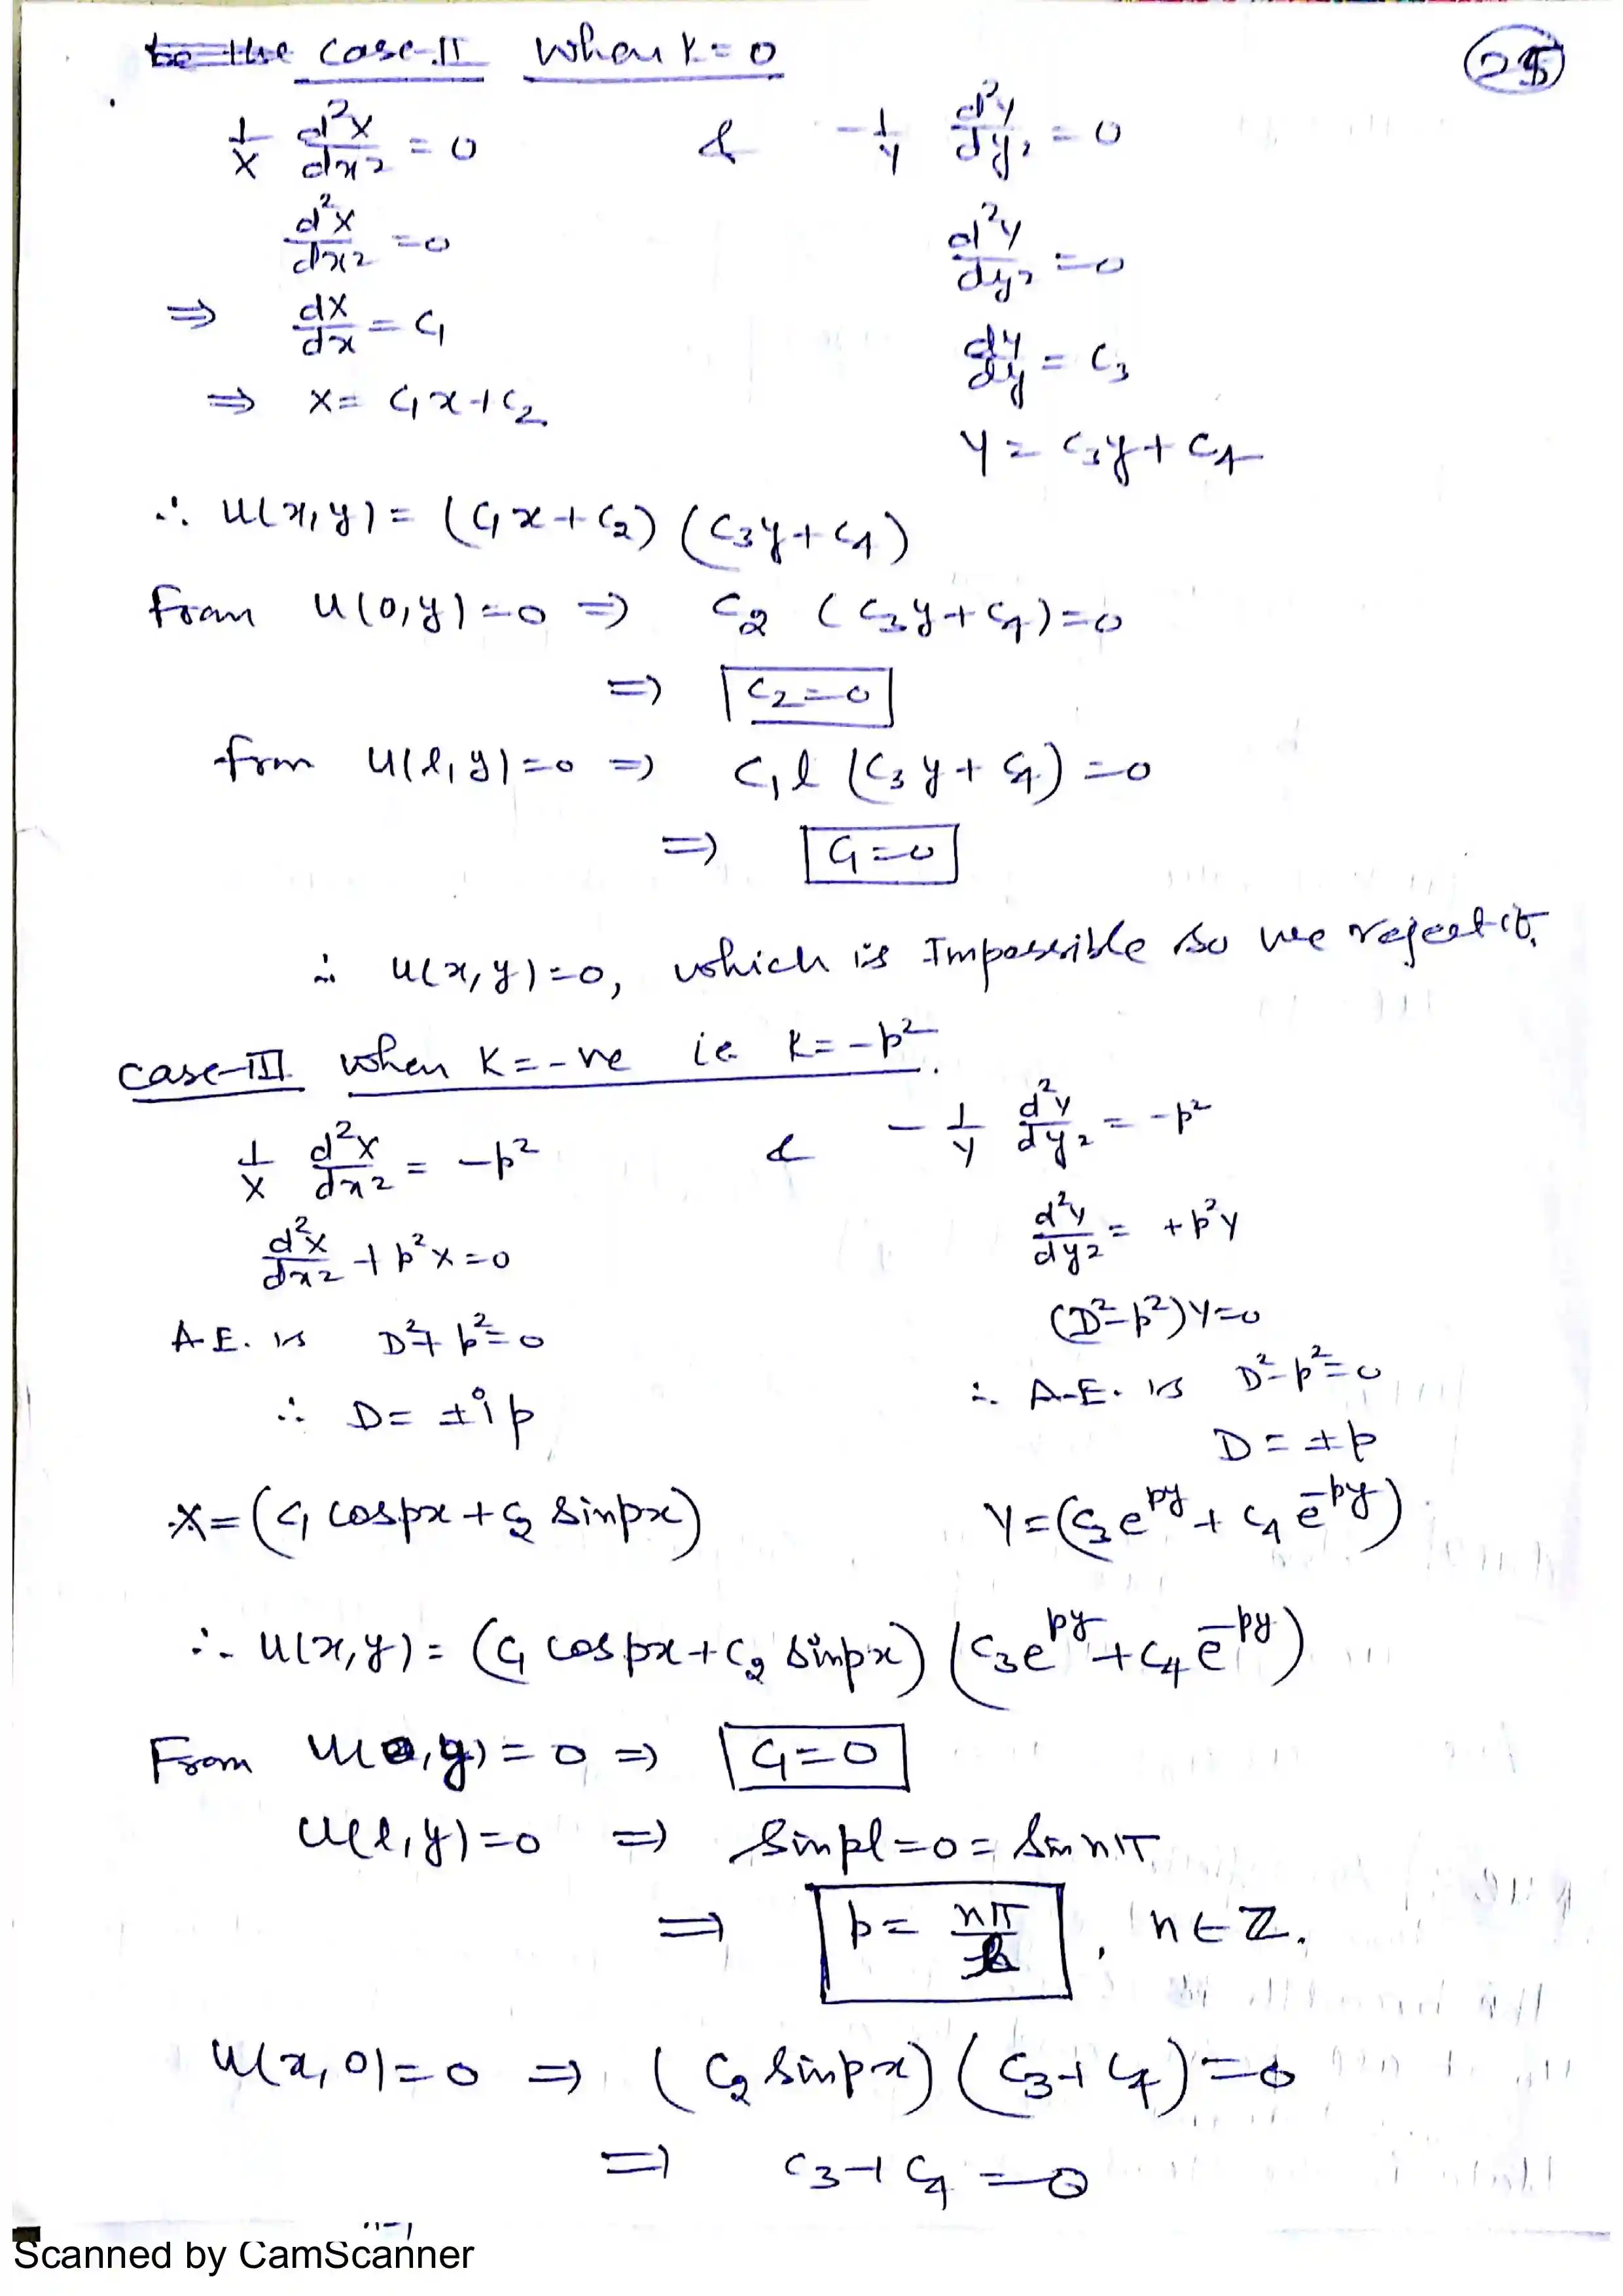 to the case-II when k=0
25
1/X d²X/dx² = 0 & -1/Y d²Y/dy² = 0
d²X/dx² = 0 d²Y/dy² = 0
⇒ dX/dx = C₁ dY/dy = C₃
⇒ X = C₁x + C₂ Y = C₃y + C₄
∴ u(x,y) = (C₁x + C₂) (C₃y + C₄)
From u(0,y) = 0 ⇒ C₂ (C₃y + C₄) = 0
⇒ C₂ = 0
from u(l,y) = 0 ⇒ C₁l (C₃y + C₄) = 0
⇒ C₁ = 0
∴ u(x,y) = 0, which is Impossible so we reject it.
Case-III when K = -ve ie K = -p².
1/X d²X/dx² = -p² & -1/Y d²Y/dy² = -p²
d²X/dx² + p²X = 0 d²Y/dy² = +p²Y
(D² - p²)Y = 0
A.E. is D² + p² = 0 ∴ A.E. is D² - p² = 0
∴ D = ±ip D = ±p
X = (C₁ cospx + C₂ sinpx) Y = (C₃e^{py} + C₄e^{-py})
∴ u(x,y) = (C₁ cospx + C₂ sinpx) (C₃e^{py} + C₄e^{-py})
From u(0,y) = 0 ⇒ C₁ = 0
u(l,y) = 0 ⇒ sinpl = 0 = sin nπ
⇒ p = nπ/l, n ∈ Z.
u(x,0) = 0 ⇒ (C₂ sinpx) (C₃ + C₄) = 0
⇒ C₃ + C₄ = 0
Scanned by CamScanner